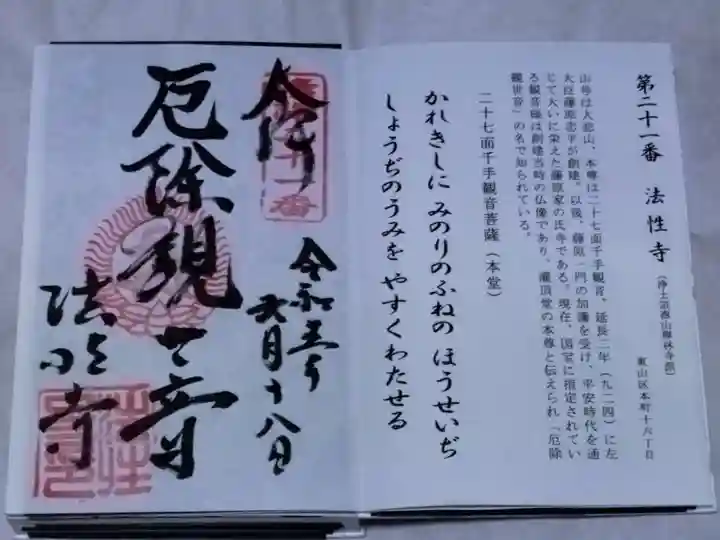 第二十一番 法性寺(浄土宗西山禅林寺派)
東山区本町十六丁目
山号は大悲山、本尊は二十七面千手観音。延長二年(九二四)に左
大臣藤原忠平が創建。以後、藤原一門の加護を受け、平安時代を通
じて大いに栄えた藤原家の氏寺である。現在、国宝に指定されてい
る観音様は創建当時の仏像であり、灌頂堂の本尊と伝えられ「厄除
観世音」の名で知られている。
二十七面千手観音菩薩(本堂)
かれきしに みのりのふねの ほうせいぢ
しょうぢのうみを やすくわたせる
奉拝
十一番
令和五年
六月十八日
厄除観世音
法性寺